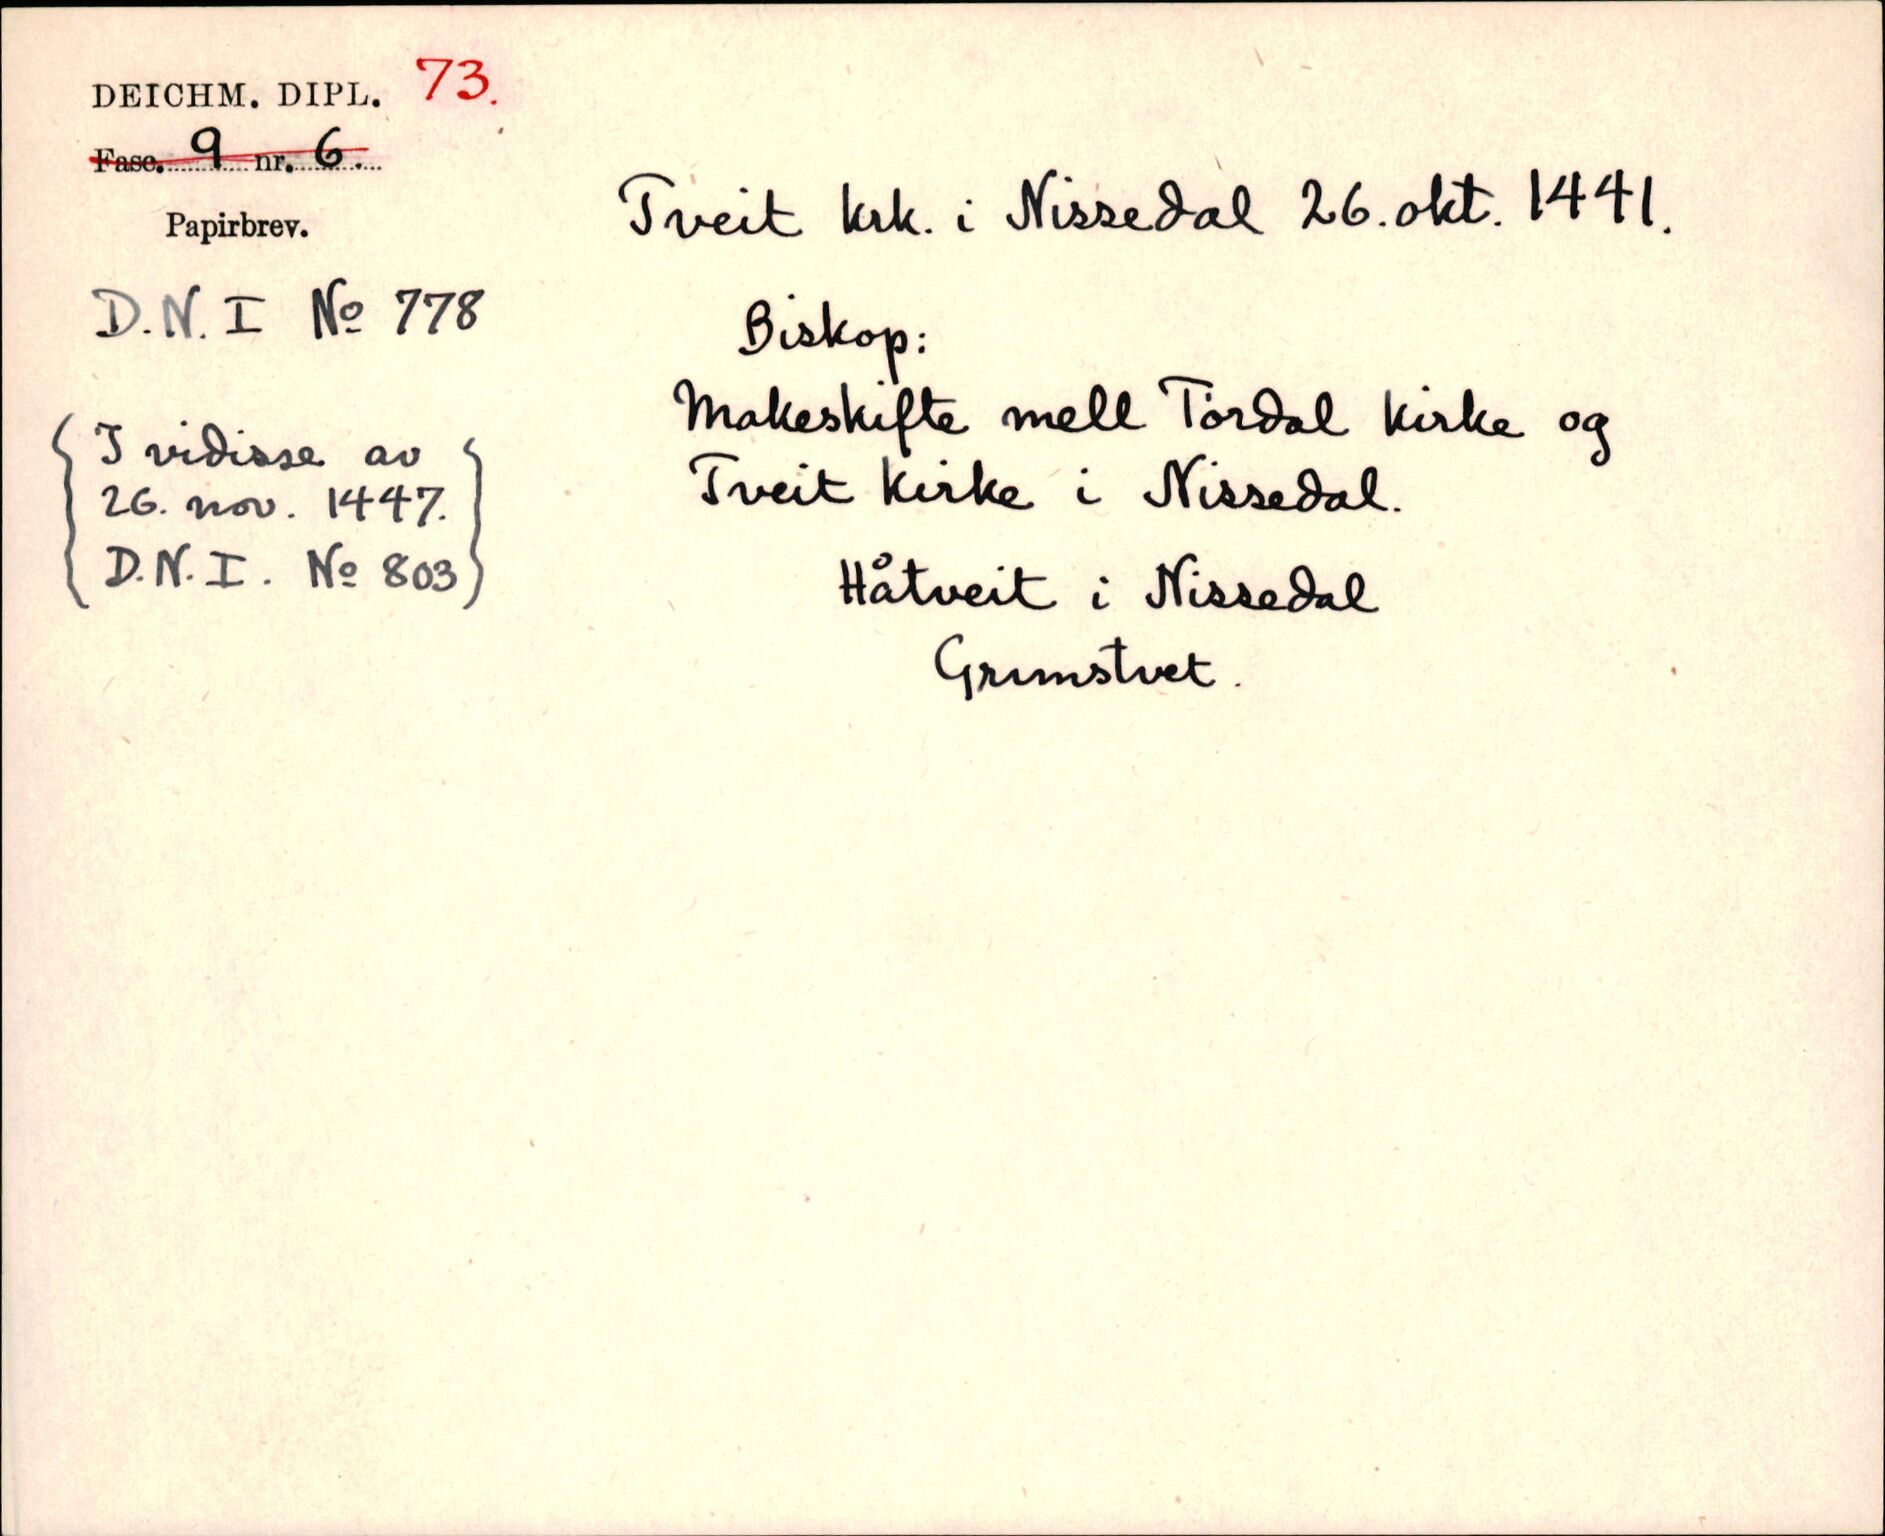 DEICHM. DIPL. 73.
Fasc. 9 nr. 6.
Papirbrev.
D.N. I No 778
I vidisse av
26. nov. 1447.
D.N.I. No 803
Tveit krk. i Nissedal 26. okt. 1441.
Biskop:
Makeskifte mell Tørdal kirke og
Tveit kirke i Nissedal.
Håtveit i Nissedal
Grimstvet.